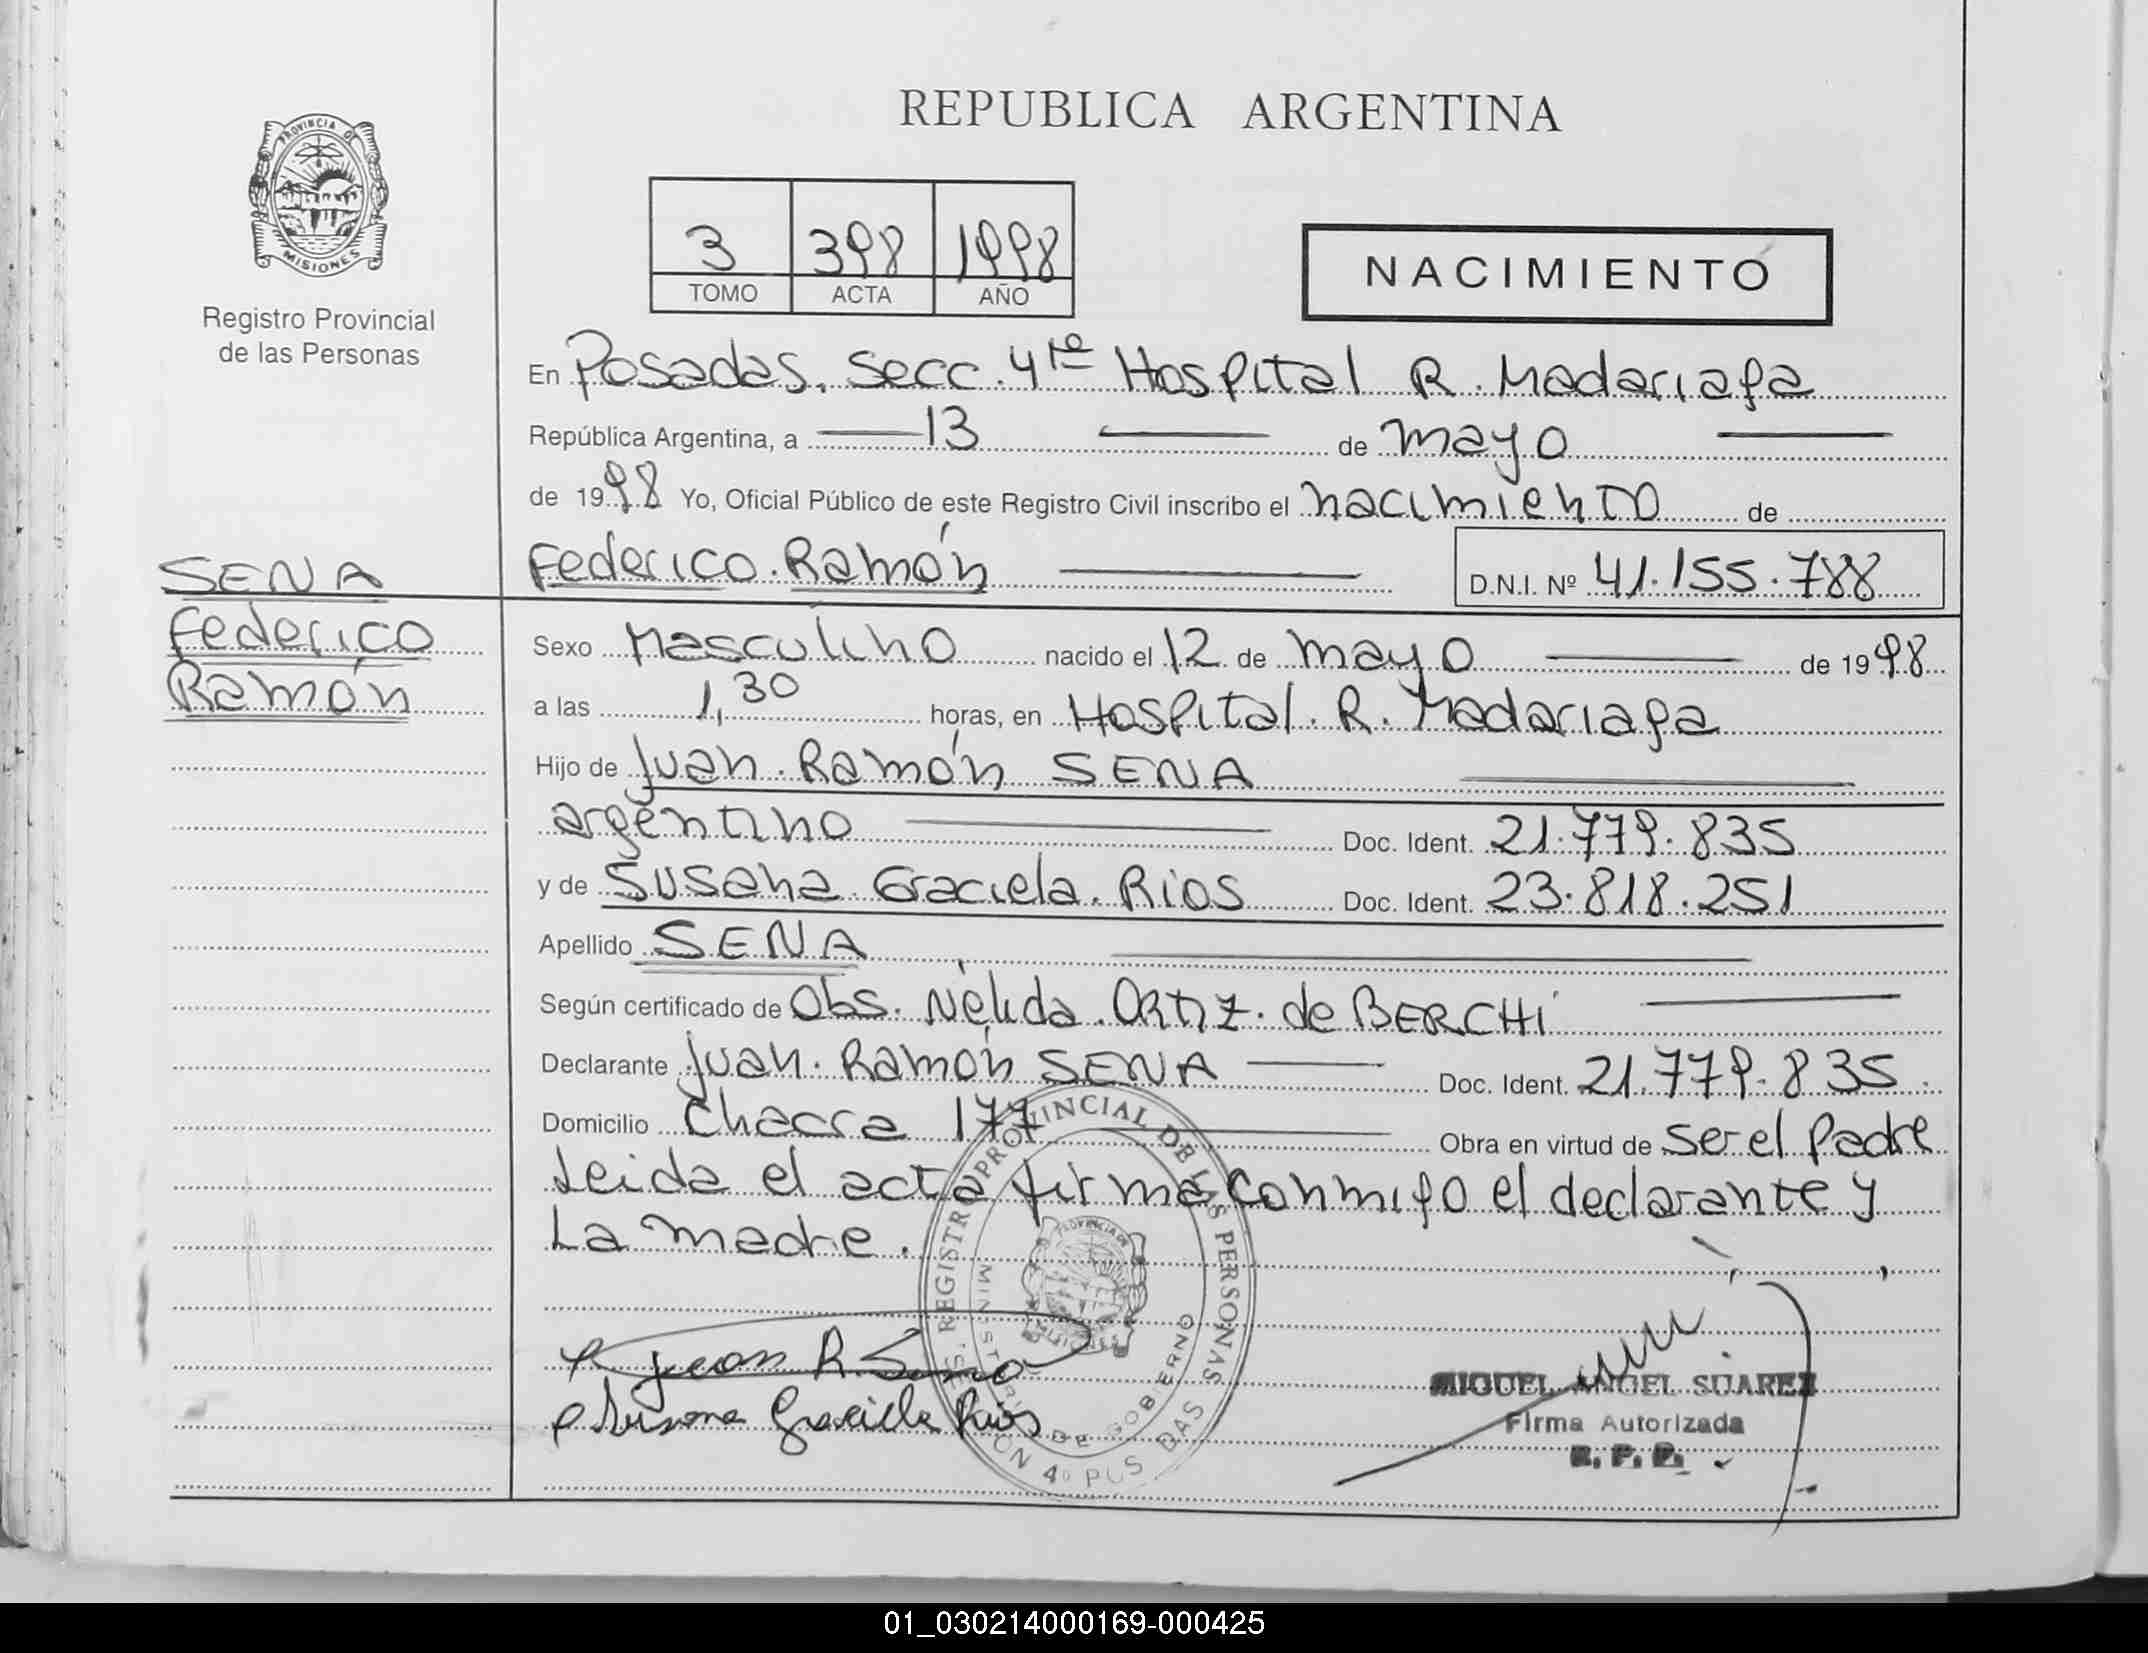 REPUBLICA ARGENTINA
PROVINCIA DE
MISIONES
Registro Provincial
de las Personas
3 398 1998
TOMO ACTA AÑO
NACIMIENTO
En Posadas. Secc. 4ta Hospital R. Madariaga
República Argentina, a 13 de mayo
de 1998 Yo, Oficial Público de este Registro Civil inscribo el nacimiento de
Federico. Ramón D.N.I. Nº 41.155.788
SENA
Federico
Ramón
Sexo Masculino nacido el 12 de mayo de 1998
a las 1,30 horas, en Hospital. R. Madariaga
Hijo de Juan. Ramón SENA
argentino Doc. Ident. 21.779.835
y de Susana. Graciela. Rios Doc. Ident. 23.818.251
Apellido SENA
Según certificado de Obs. Nélida. Ortiz. de BERCHI
Declarante Juan. Ramón SENA Doc. Ident. 21.779.835
Domicilio Chacra 177 Obra en virtud de Ser el Padre
Leida el acta firma conmigo el declarante y
La madre.
REGISTRO PROVINCIAL DE LAS PERSONAS
MINISTERIO DE GOBIERNO
Juan R. Sena
Susana Graciela Rios
MIGUEL ANGEL SUAREZ
Firma Autorizada
R. P. P.
01_030214000169-000425